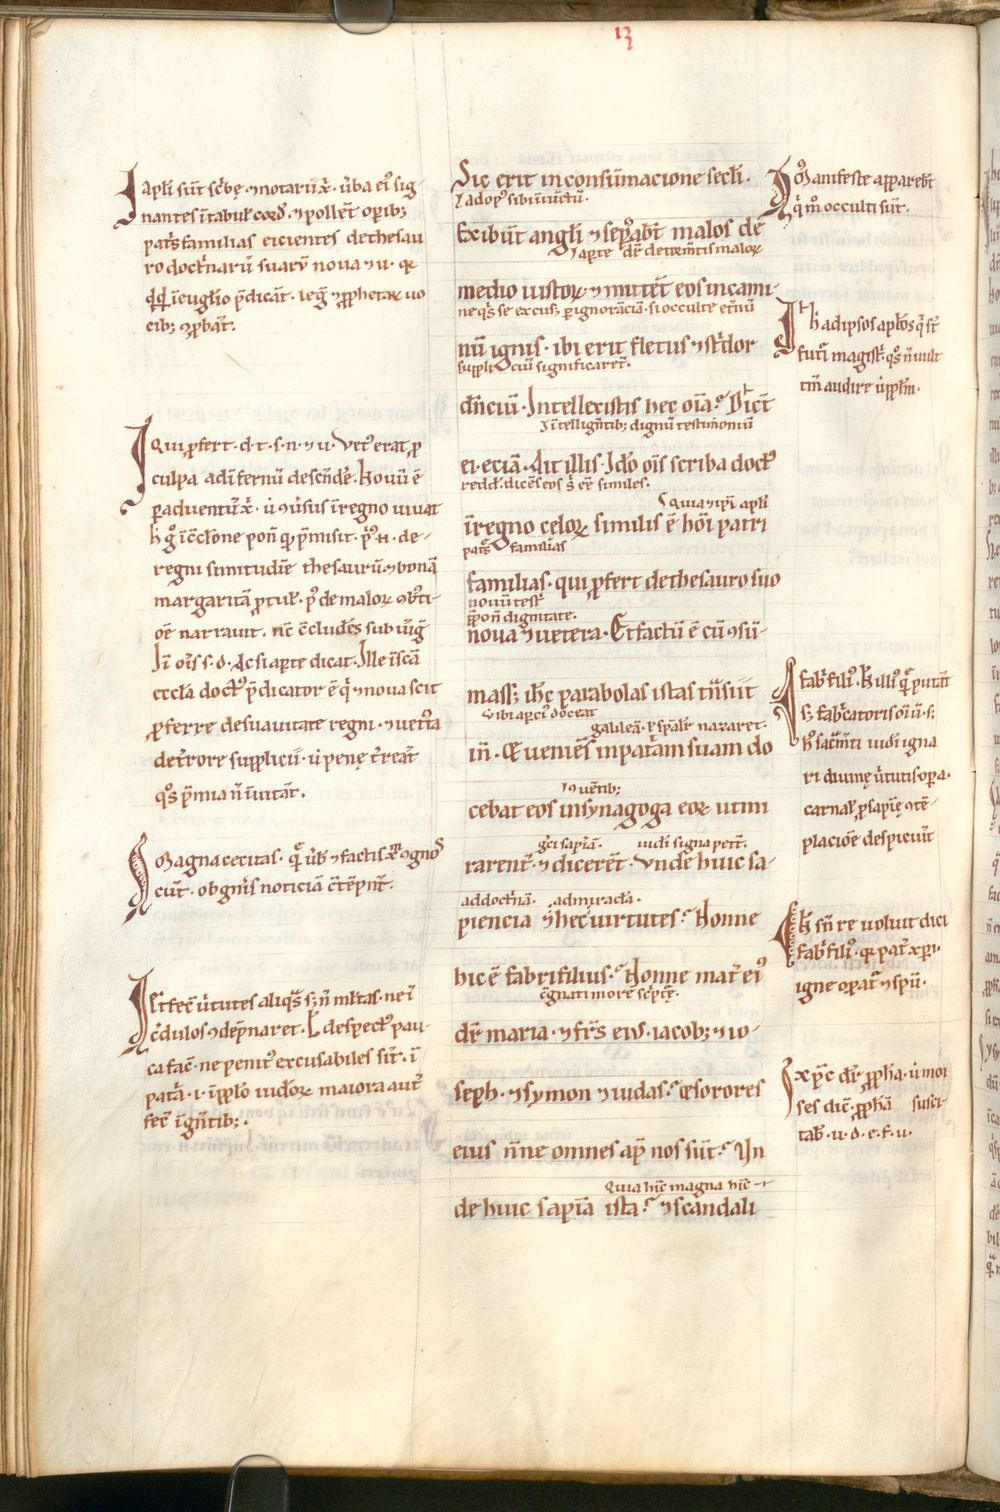 13
I apłi sūt scˀbę ⁊ notarii xp̄i. ůba eiꝰ sig-
nantes ī tabuł cord̄. ⁊ pollēt opib;
patˀsfamilias eicientes de thesau
ro doctˀnarū suarū noua ⁊ u. qꝛ
qͥdqͥd ī euglio p̄dicāt. legˀ ⁊ ꝓphetaꝝ uo
cib; ꝓbāt.
I Qui ꝓfert. d. t. s. n. ⁊ u. Vetˀ erat ꝓ
culpa ad īfernū descēdˀe. Nouū ē
ꝑ aduentū xp̄i. ů ꝯůsus ī regno uiuat
regni similitudīe thesaurū ⁊ bonā
margaritā ꝓtuł. pꝰ de maloꝝ ꝯbˀti-
oē narrauit. nc̄ cˀcludēs subiūg̊
Iō oīs s. d. Ac si apte dicat. Ille ī scā
eccła doctꝰ p̄dicator ē qͥ ⁊ noua scit
ꝓferre de suauitate regni. ⁊ uetˀa
de tˀrore supplicii. ů penę tˀreāt
qͦs p̄mia ñ īuitāt.
Magna cecitas. qͣ ůb̄ ⁊ factis xp̄m ꝯgnos
cūt. ob genˀis noticiā cˀtēpnt̄.
Iō fecˀ ůtutes aliqͣs s; ñ młtas. ne ī
cˀdulos ꝯdēpnaret. ł despectˀ pau-
ca facˀ. ne penitˀ excusabiles sīt. ī
patˀa. i. ī ꝓplo iudˀoꝝ maiora aut̄
fecˀ ī gēntib;.
Sic erit in consūmacione sec̄li.
Ad opˀs sibi īiūctū.
Exibūt angl̄i ⁊ sepˀabt̄ malos de
Apte dr̄ detrm̄tis maloꝝ
medio iustoꝝ ⁊ mittēt eos in cami-
ne qͥs se excus; ꝑ ignorāciā. si occulte et̄nū
nū ignis. ibi erit fletus ⁊ stˀdor
suppliciū significaret̄.
dn̄ciū. Intellexistis hec oīa. Dict̄
Intellign̄tib; dignū testimoniū
ei. eciā. Ait illis. Ideo oīs scriba doctꝰ
redd̄. dicēs eos ẜ ee̅ similes.
Quia ⁊ ipi apłi
ī regno celoꝝ similis ē hoi patri
patˀsfamilias
familias. qui ꝓfert de thesauro suo
nouū testˀ
ꝓpon̄ dignitate.
noua ⁊ uetera. Et factū ē cū ꝯsū-
mass; ihc̄ parabolas istas tn̄siit
Vbi aꝑciꝰ doceat
galileā. ł spałr nazaret.
īn̄. Et ueniēs in patˀam suam do
Iuuētib;
cebat eos in synagoga eoꝝ ut mi
gˀci sapīā. iudˀi signa petˀ.
rarent̄. ⁊ dicerēt. Vnde huic sa-
ad doctˀnā. ad miracła.
piencia hec ⁊ uirtutes. Nonne
hic ē fabri filius. Nonne mat̄ eiꝰ
cˀgnati more scˀptˀe.
dr̄ maria. ⁊ frˀs eius. iacob; ⁊ io-
seph. ⁊ symon ⁊ iudas. Et sorores
eius nn̄e omnes apˀ nos sūt. Un
Quia hic magna hic
de huic sapīa ista. ⁊ scandali
Manifeste apparebt̄
qͥ mˀ occulti sūt.
hˀ ad ipsos apłos qͥ st̄
futˀi magistˀ. qͦs ñ uult
tm̄ audire
fabˀ filiꝰ. hˀ illiꝰ qͥ putat̄
s; fabˀcatoris oīū. s;
hˀ sacm̄ti iudˀi igna
ri diuinę ůtutis opa.
carnał ꝓsapię ꝯtē-
placiōe despiciūt
hˀ sn̄ re uoluit dici
fabˀ filiꝰ. qꝛ patˀ xpi.
igne opat̄ ⁊ spū.
Xpc̄ dr̄ ꝓpha. ů moi
ses dic̄. ꝓpham susci-
tab̄. u. d. e. f. u.